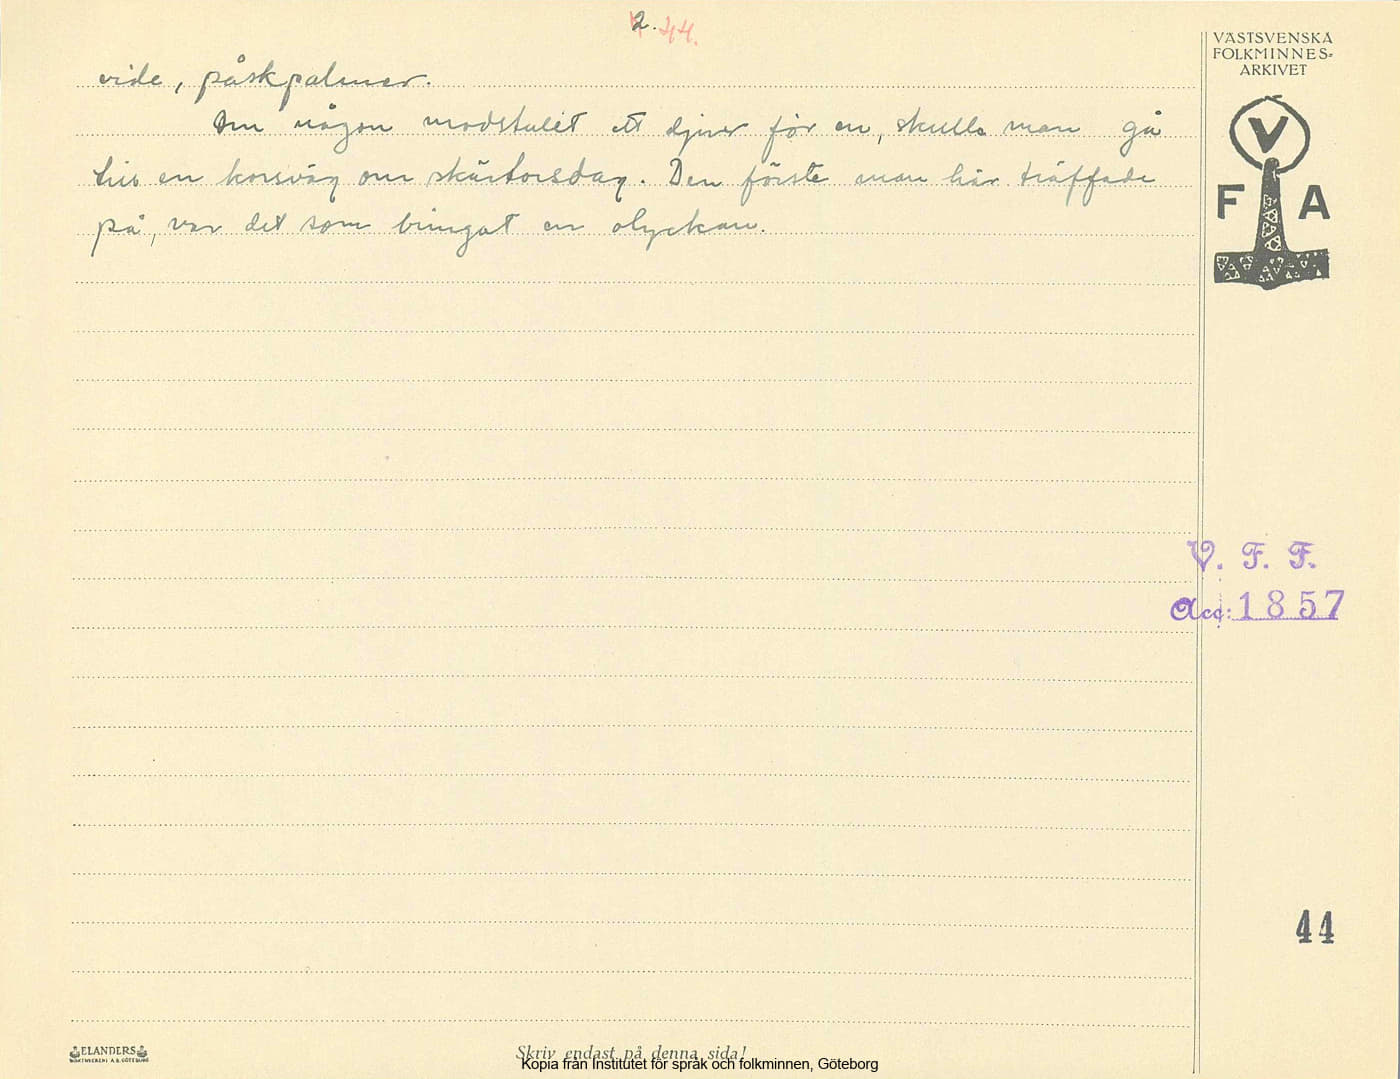 2. 44.
vide, påskpalmer.
Om någon modstulit ett djur för en, skulle man gå
till en korsväg om skärtorsdag. Den förste man här träffade
på, var det som bringat en olyckan.
VÄSTSVENSKA
FOLKMINNES-
ARKIVET
V
F A
V. F. F.
Acc: 1857
44
ELANDERS
BOKTRYCKERI A.B. GÖTEBORG
Skriv endast på denna sida!
Kopia från Institutet för språk och folkminnen, Göteborg